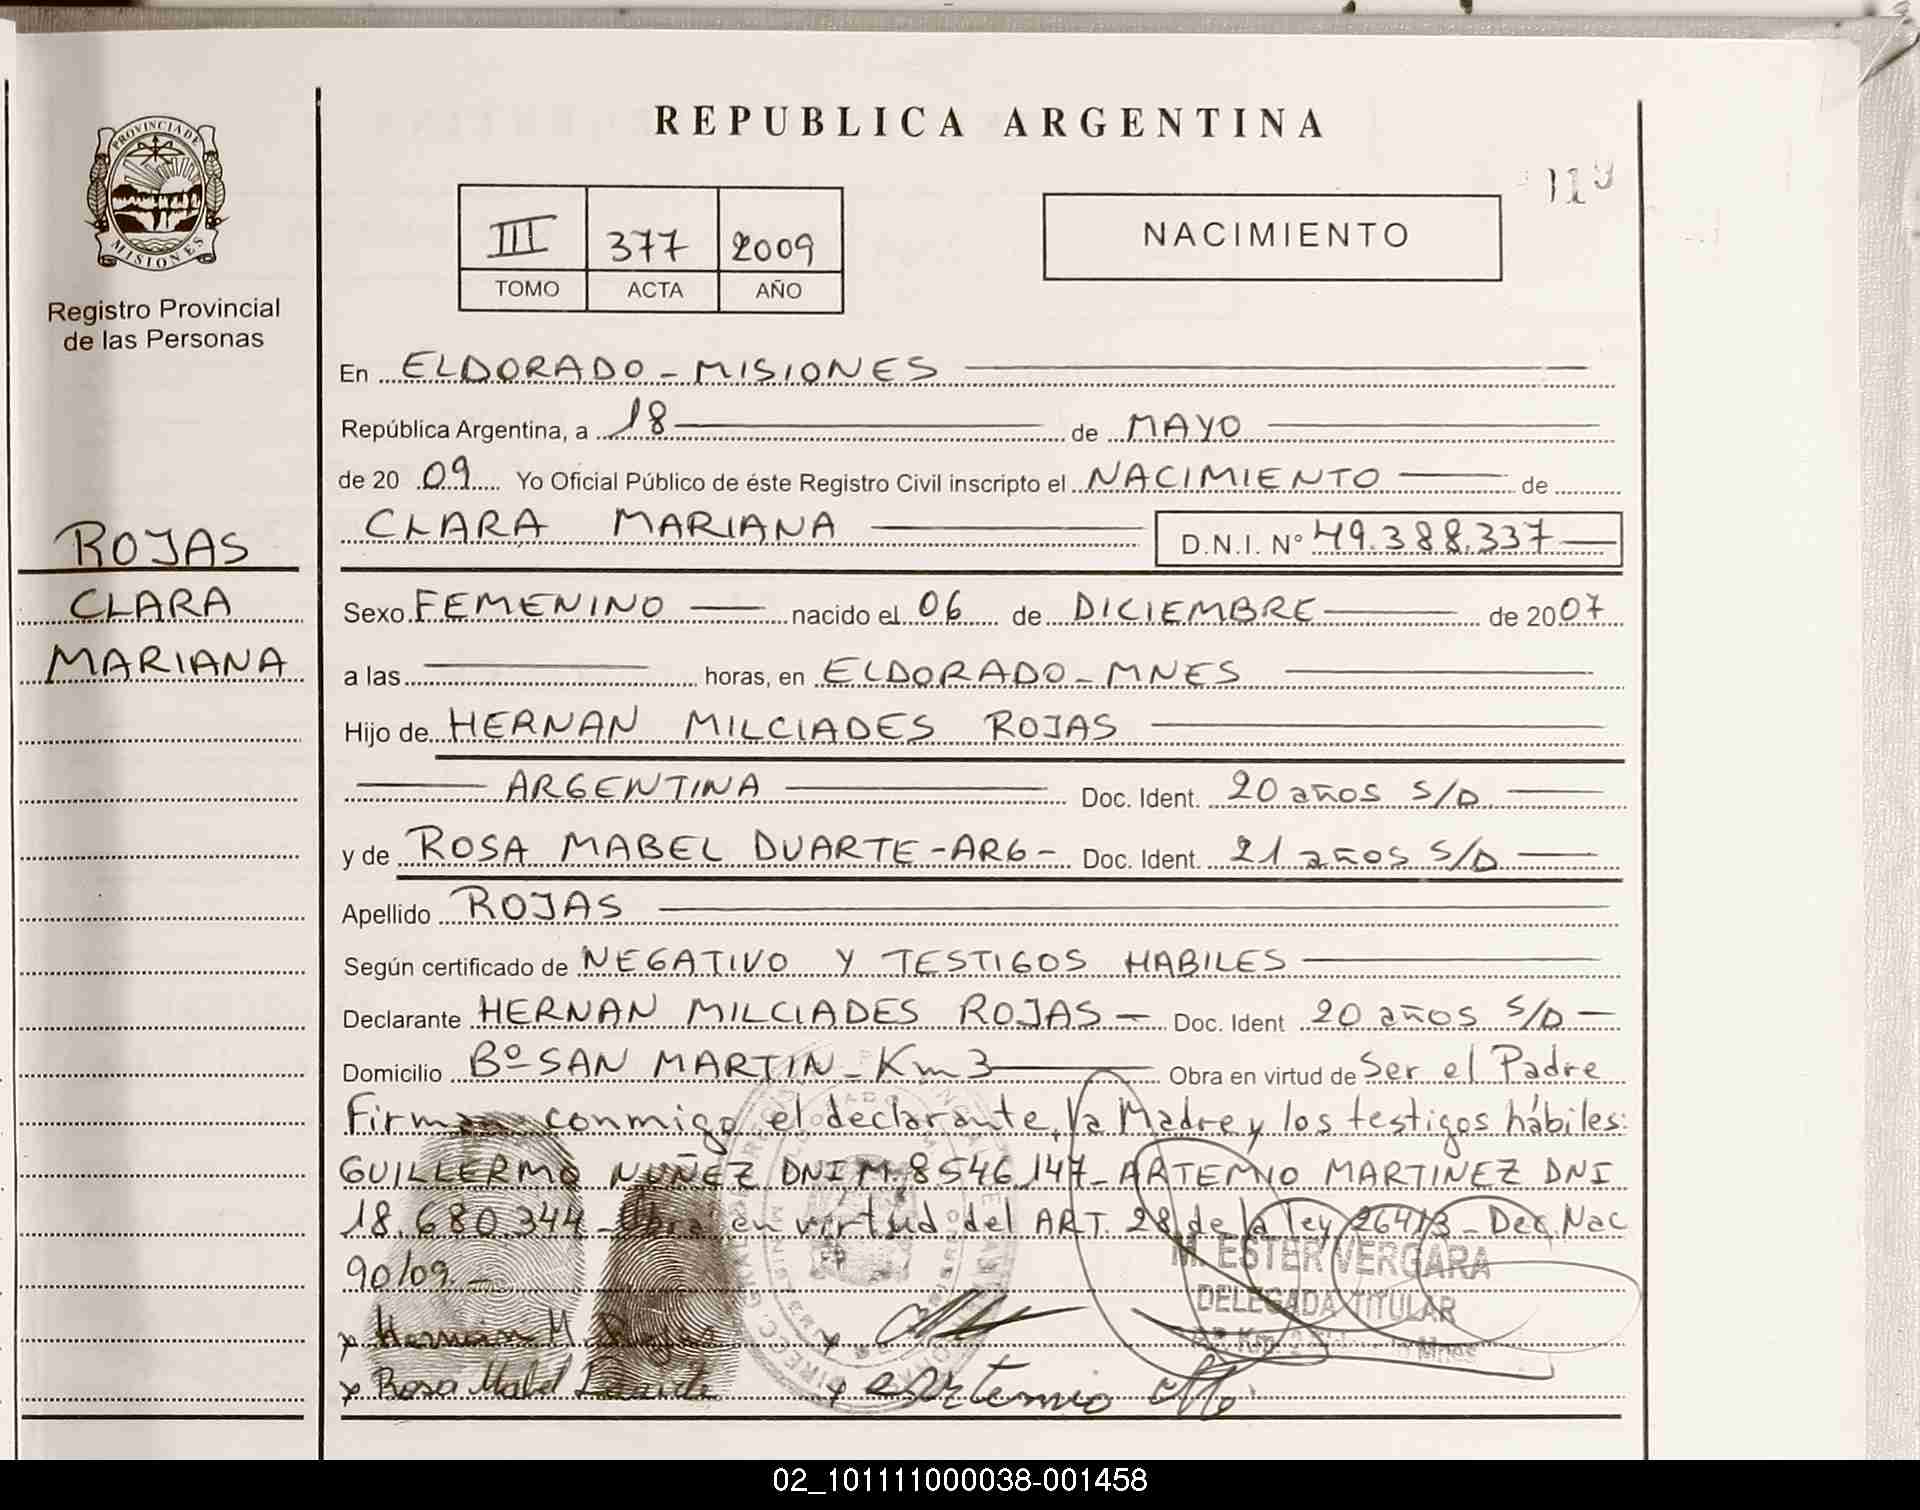 REPUBLICA ARGENTINA
PROVINCIA DE
MISIONES
Registro Provincial
de las Personas
III 377 2009
TOMO ACTA AÑO
NACIMIENTO
ROJAS
CLARA
MARIANA
En ELDORADO - MISIONES
República Argentina, a 18 de MAYO
de 2009 Yo Oficial Público de éste Registro Civil inscripto el NACIMIENTO de
CLARA MARIANA D.N.I. N° 49.388.337
Sexo FEMENINO nacido el 06 de DICIEMBRE de 2007
a las horas, en ELDORADO - MNES
Hijo de HERNAN MILCIADES ROJAS
ARGENTINA Doc. Ident. 20 años S/D
y de ROSA MABEL DUARTE - ARG - Doc. Ident. 21 años S/D
Apellido ROJAS
Según certificado de NEGATIVO Y TESTIGOS HABILES
Declarante HERNAN MILCIADES ROJAS - Doc. Ident 20 años S/D -
Domicilio Bº SAN MARTIN - Km 3 Obra en virtud de Ser el Padre
Firman conmigo el declarante, la Madre y los testigos hábiles:
GUILLERMO NUÑEZ DNI M. 8546.147 - ARTEMIO MARTINEZ DNI
18.680.344 - Obra en virtud del ART. 28 de la Ley 26413 - Dec. Nac
90/09. -
M. ESTER VERGARA
DELEGADA TITULAR
x Hernán M. Rojas x
x Rosa Mabel Duarte x Artemio
02_101111000038-001458